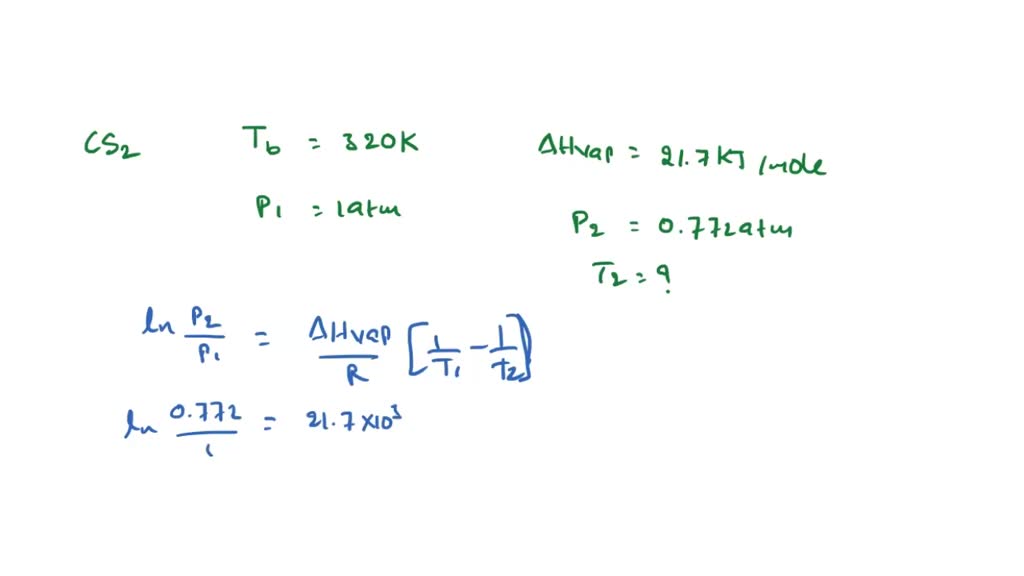 CS₂ T_b = 320K ΔHvap = 21.7 KJ/mole
P₁ = 1atm P₂ = 0.772atm
T₂ = ?
ln P₂/P₁ = ΔHvap/R [1/T₁ - 1/T₂]
ln 0.772/1 = 21.7×10³